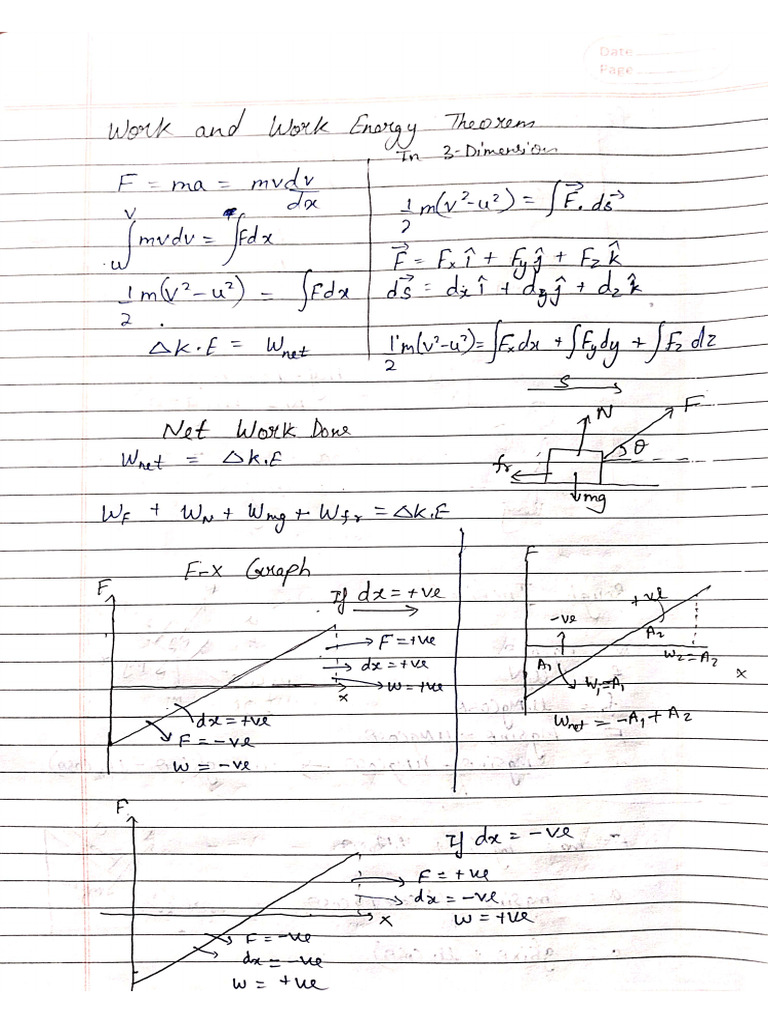 Date
Page
Work and Work Energy Theorem
In 3-Dimension
F = ma = mv dv/dx
∫ᵤᵛ mvdv = ∫Fdx
1/2 m(v²-u²) = ∫Fdx
Δk.E = Wnet
1/2 m(v²-u²) = ∫F⃗. ds⃗
F⃗ = Fx î + Fy ĵ + Fz k̂
ds⃗ = dx î + dy ĵ + dz k̂
1/2 m(v²-u²) = ∫Fxdx + ∫Fydy + ∫Fz dz
S
N
F
θ
fr
mg
Net Work Done
Wnet = Δk.E
WF + WN + Wmg + Wfr = Δk.E
F-x Graph
F
If dx = +ve
F = +ve
dx = +ve
W = +ve
x
dx = +ve
F = -ve
W = -ve
F
+ve
-ve
A2
A1
W2=A2
W1=A1
x
Wnet = -A1 + A2
F
If dx = -ve
F = +ve
dx = -ve
x
W = +ve
F = -ve
dx = -ve
W = +ve